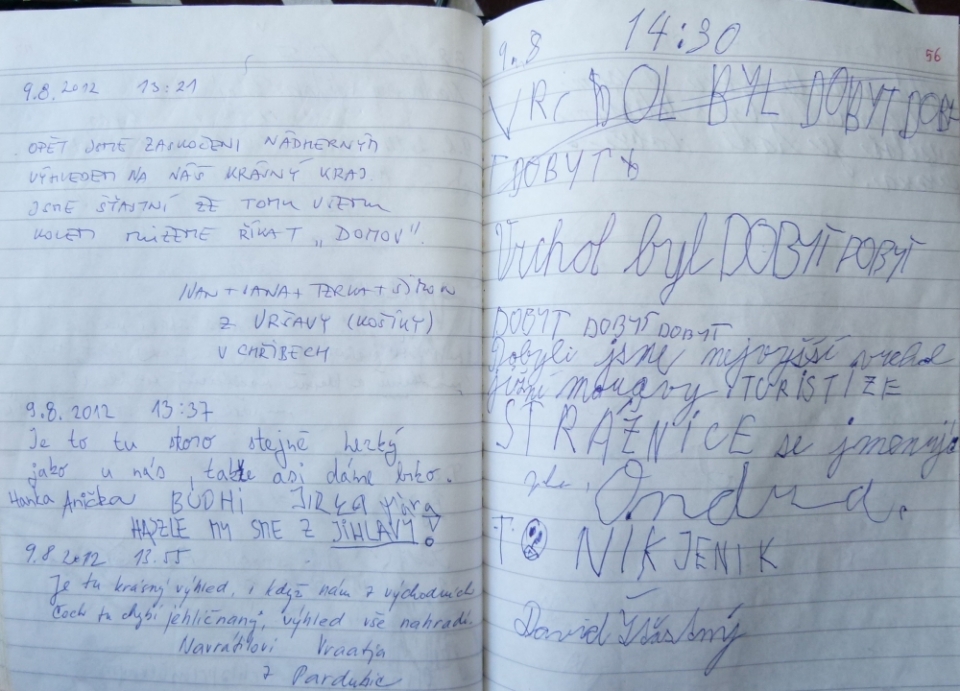 9.8.2012 13:21
OPĚT JSME ZASKOČENI NÁDHERNÝM
VÝHLEDEM NA NÁŠ KRÁSNÝ KRAJ.
JSME ŠŤASTNÍ ŽE TOMU VŠEMU
KOLEM MŮŽEME ŘÍKAT „DOMOV".
IVAN + JANA + TERKA + ŠIMON
Z VRŠAVY (KOŠÍKY)
V CHŘIBECH
9.8.2012 13:37
Je to tu skoro stejně hezký
jako u nás, takže asi dáme brko.
Hanka Anička BUDHI JIRKA Mára
HAJZLE MY SME Z JIHLAVY!
9.8.2012 13.55
Je tu krásný výhled, i když nám z východních
Čech tu chybí jehličnany, výhled vše nahradí.
Navrátilovi
z Pardubic
56
9.8 14:30
VRCHOL BYL DOBYT DOBY
T DOBYT
Vrchol byl DOBYT DOBYT
DOBYT DOBYT DOBYT
Dobyli jsme nejvyšší vrchol
jižní moravy TURISTI ZE
STRÁŽNICE se jmenují
Ondra.
T NIK JENIK
David Šťastný